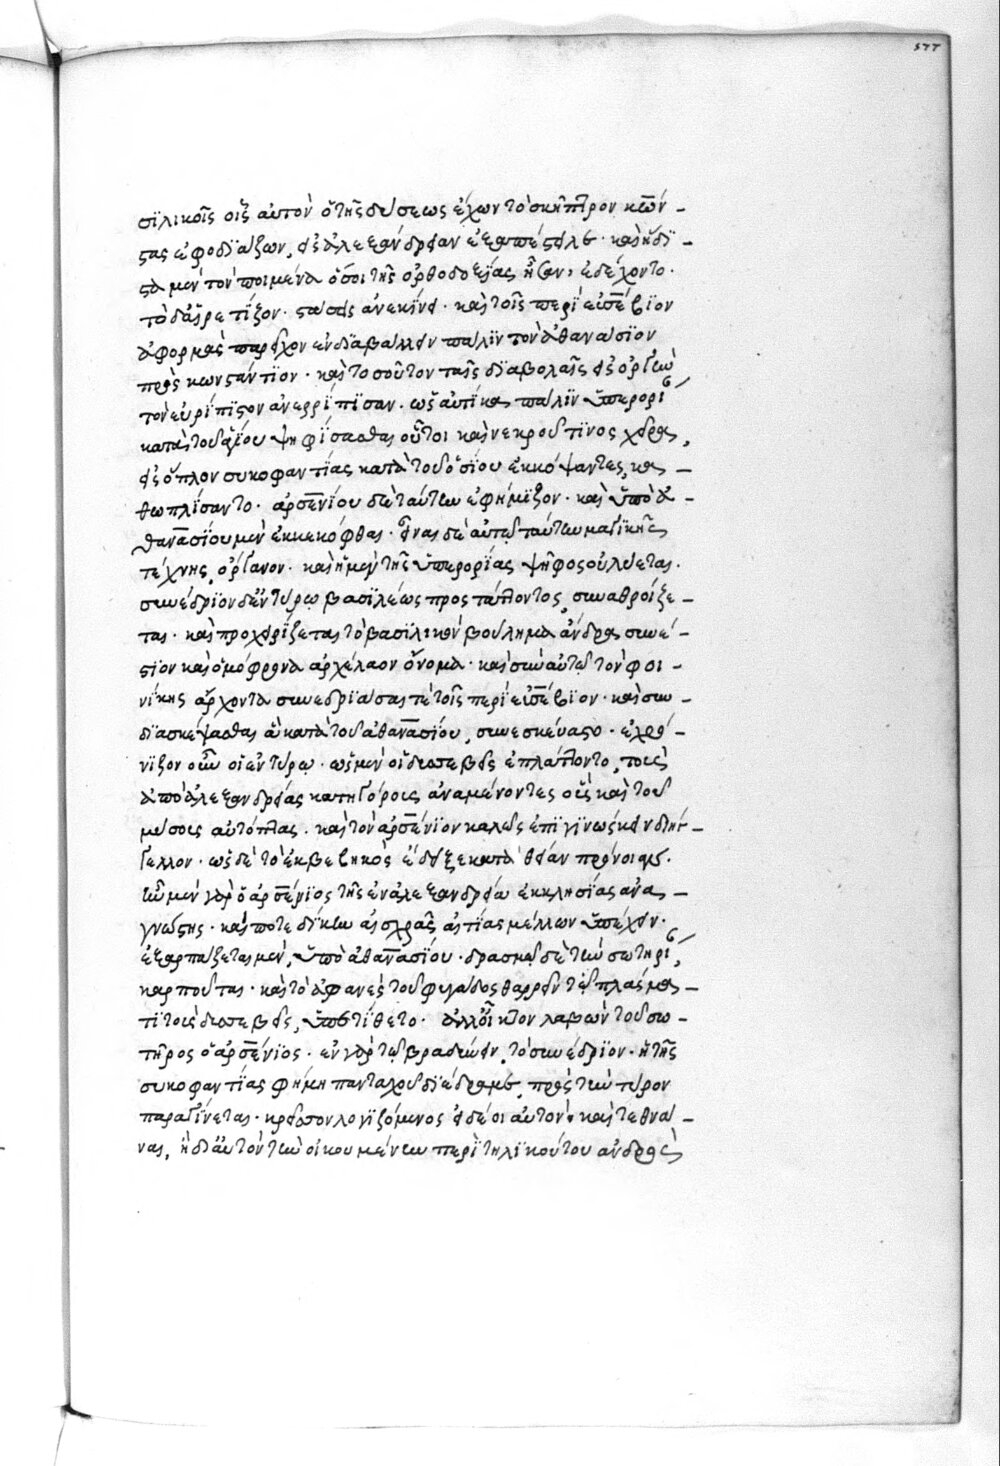 σϊλικοῖς οἷς αὐτὸν ὁ τῆς δύσεως ἔχων τὸ σκῆπτρον κῶν –
στας ἐφοδϊάζων, εἰς ἀλεξάνδρειαν ἐξαπέστειλε· καὶ ἡδϊ –
στα μὲν τὸν ποιμένα ὅσοι τῆς ὀρθοδοξίας ἦσαν, ἐδέχοντο·
τὸ δ' αἱρετίζον· στάσεις ἀνεκίνει· καὶ τοῖς περὶ εὐσέβϊον
ἀφορμὰς παρεῖχον ἐνδϊαβάλλειν πάλϊν τὸν ἀθανάσϊον
πρὸς κωνστάντϊον· καὶ τοσοῦτον ταῖς δϊαβολαῖς εἰς ὀργὴν
τὸν εὐρίπϊστον ἀνερρίπϊσαν· ὡς αὐτίκα πάλϊν ὑπερορί
αν κατὰ τοῦ ἁγίου ψηφίσασθαι οὗτοι καὶ νεκροῦ τϊνος χεῖρα,
εἰς ὅπλον συκοφαντίας κατὰ τοῦ ὁσίου ἐκκόψαντες, κα –
θωπλίσαντο· ἀρσενίου δὲ ταύτην ἐφήμϊζον· καὶ ὑπὸ ἀ –
θανασίου μὲν ἐκκεκόφθαι· εἶναι δὲ αὐτῶ ταύτην μαγϊκῆς
τέχνης, ὄργανον· καὶ ἡ μὲν τῆς ὑπερορίας ψῆφος οὐ λύεται·
συνέδρϊον δ' ἐν τύρω βασϊλέως προστάττοντος, συναθροίζε –
ται· καὶ προχειρίζεται τὸ βασϊλικὸν βούλημα ἄνδρα συνε –
τὸν καὶ ὁμόφρονα ἀρχέλαον ὄνομα· καὶ σὺν αὐτῶ τὸν φοι –
νίκης ἄρχοντα συνεδρϊάσαι τε τοῖς περὶ εὐσέβϊον· καὶ συν
δϊασκέψασθαι ἃ κατὰ τοῦ ἀθανασίου, συνεσκεύαστο· ἐχρό –
νϊζον οὖν οἱ ἐν τύρω· ὡς μὲν οἱ δυσσεβεῖς ἐπλάττοντο, τοὺς
ἀπὸ ἀλεξανδρείας κατηγόρους ἀναμένοντες οἷς καὶ τοῦ
μύσους αὐτόπτας· καὶ τὸν ἀρσένϊον καλῶς ἐπϊγϊνώσκειν διήγ –
γελλον· ὡς δὲ τὸ ἐκβεβηκὸς ἔδειξε κατὰ θείαν πρόνοιαν·
ἦν μὲν γὰρ ὁ ἀρσένϊος τῆς ἐν ἀλεξανδρεία ἐκκλησίας ἀνα –
γνώστης· καί ποτε δίκην αἰσχρᾶς αἰτίας μέλλων ὑπέχειν·
ἐξαρπάζεται μὲν, ὑπὸ ἀθανασίου· δρασμῶ δὲ τὴν σωτηρί
αν, καρποῦται· καὶ τὸ ἀφανὲς τοῦ φυγάδος θαρρεῖν τῶ πλάσμα –
τϊ τοὺς δυσσεβεῖς, ὑπετίθετο· ἀλλ' οἶκτον λαβὼν τοῦ σω –
τῆρος ὁ ἀρσένϊος· ἐν γὰρ τῶ βραδύνειν, τὸ συνέδρϊον· ἡ τῆς
συκοφαντίας φήμη πανταχοῦ δϊέδραμε, πρὸς τὴν τύρον
παραγίνεται· κρεῖττον λογϊζόμενος εἰ δέοι αὐτὸν καὶ τεθνά –
ναι, ἢ δϊ' αὐτὸν τὴν οἰκουμένην περὶ τηλϊκούτου ἀνδρὸς